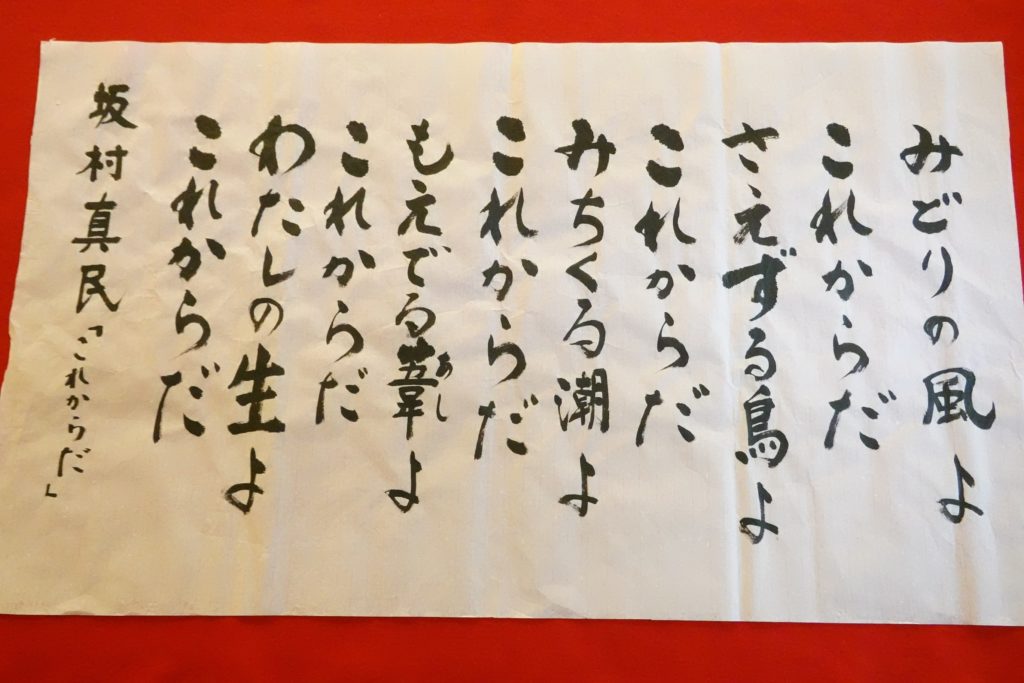 みどりの風よ
これからだ
さえずる鳥よ
これからだ
みちくる潮よ
これからだ
もえでる葦よ
あし
これからだ
わたしの生よ
これからだ
坂村真民「これからだ」